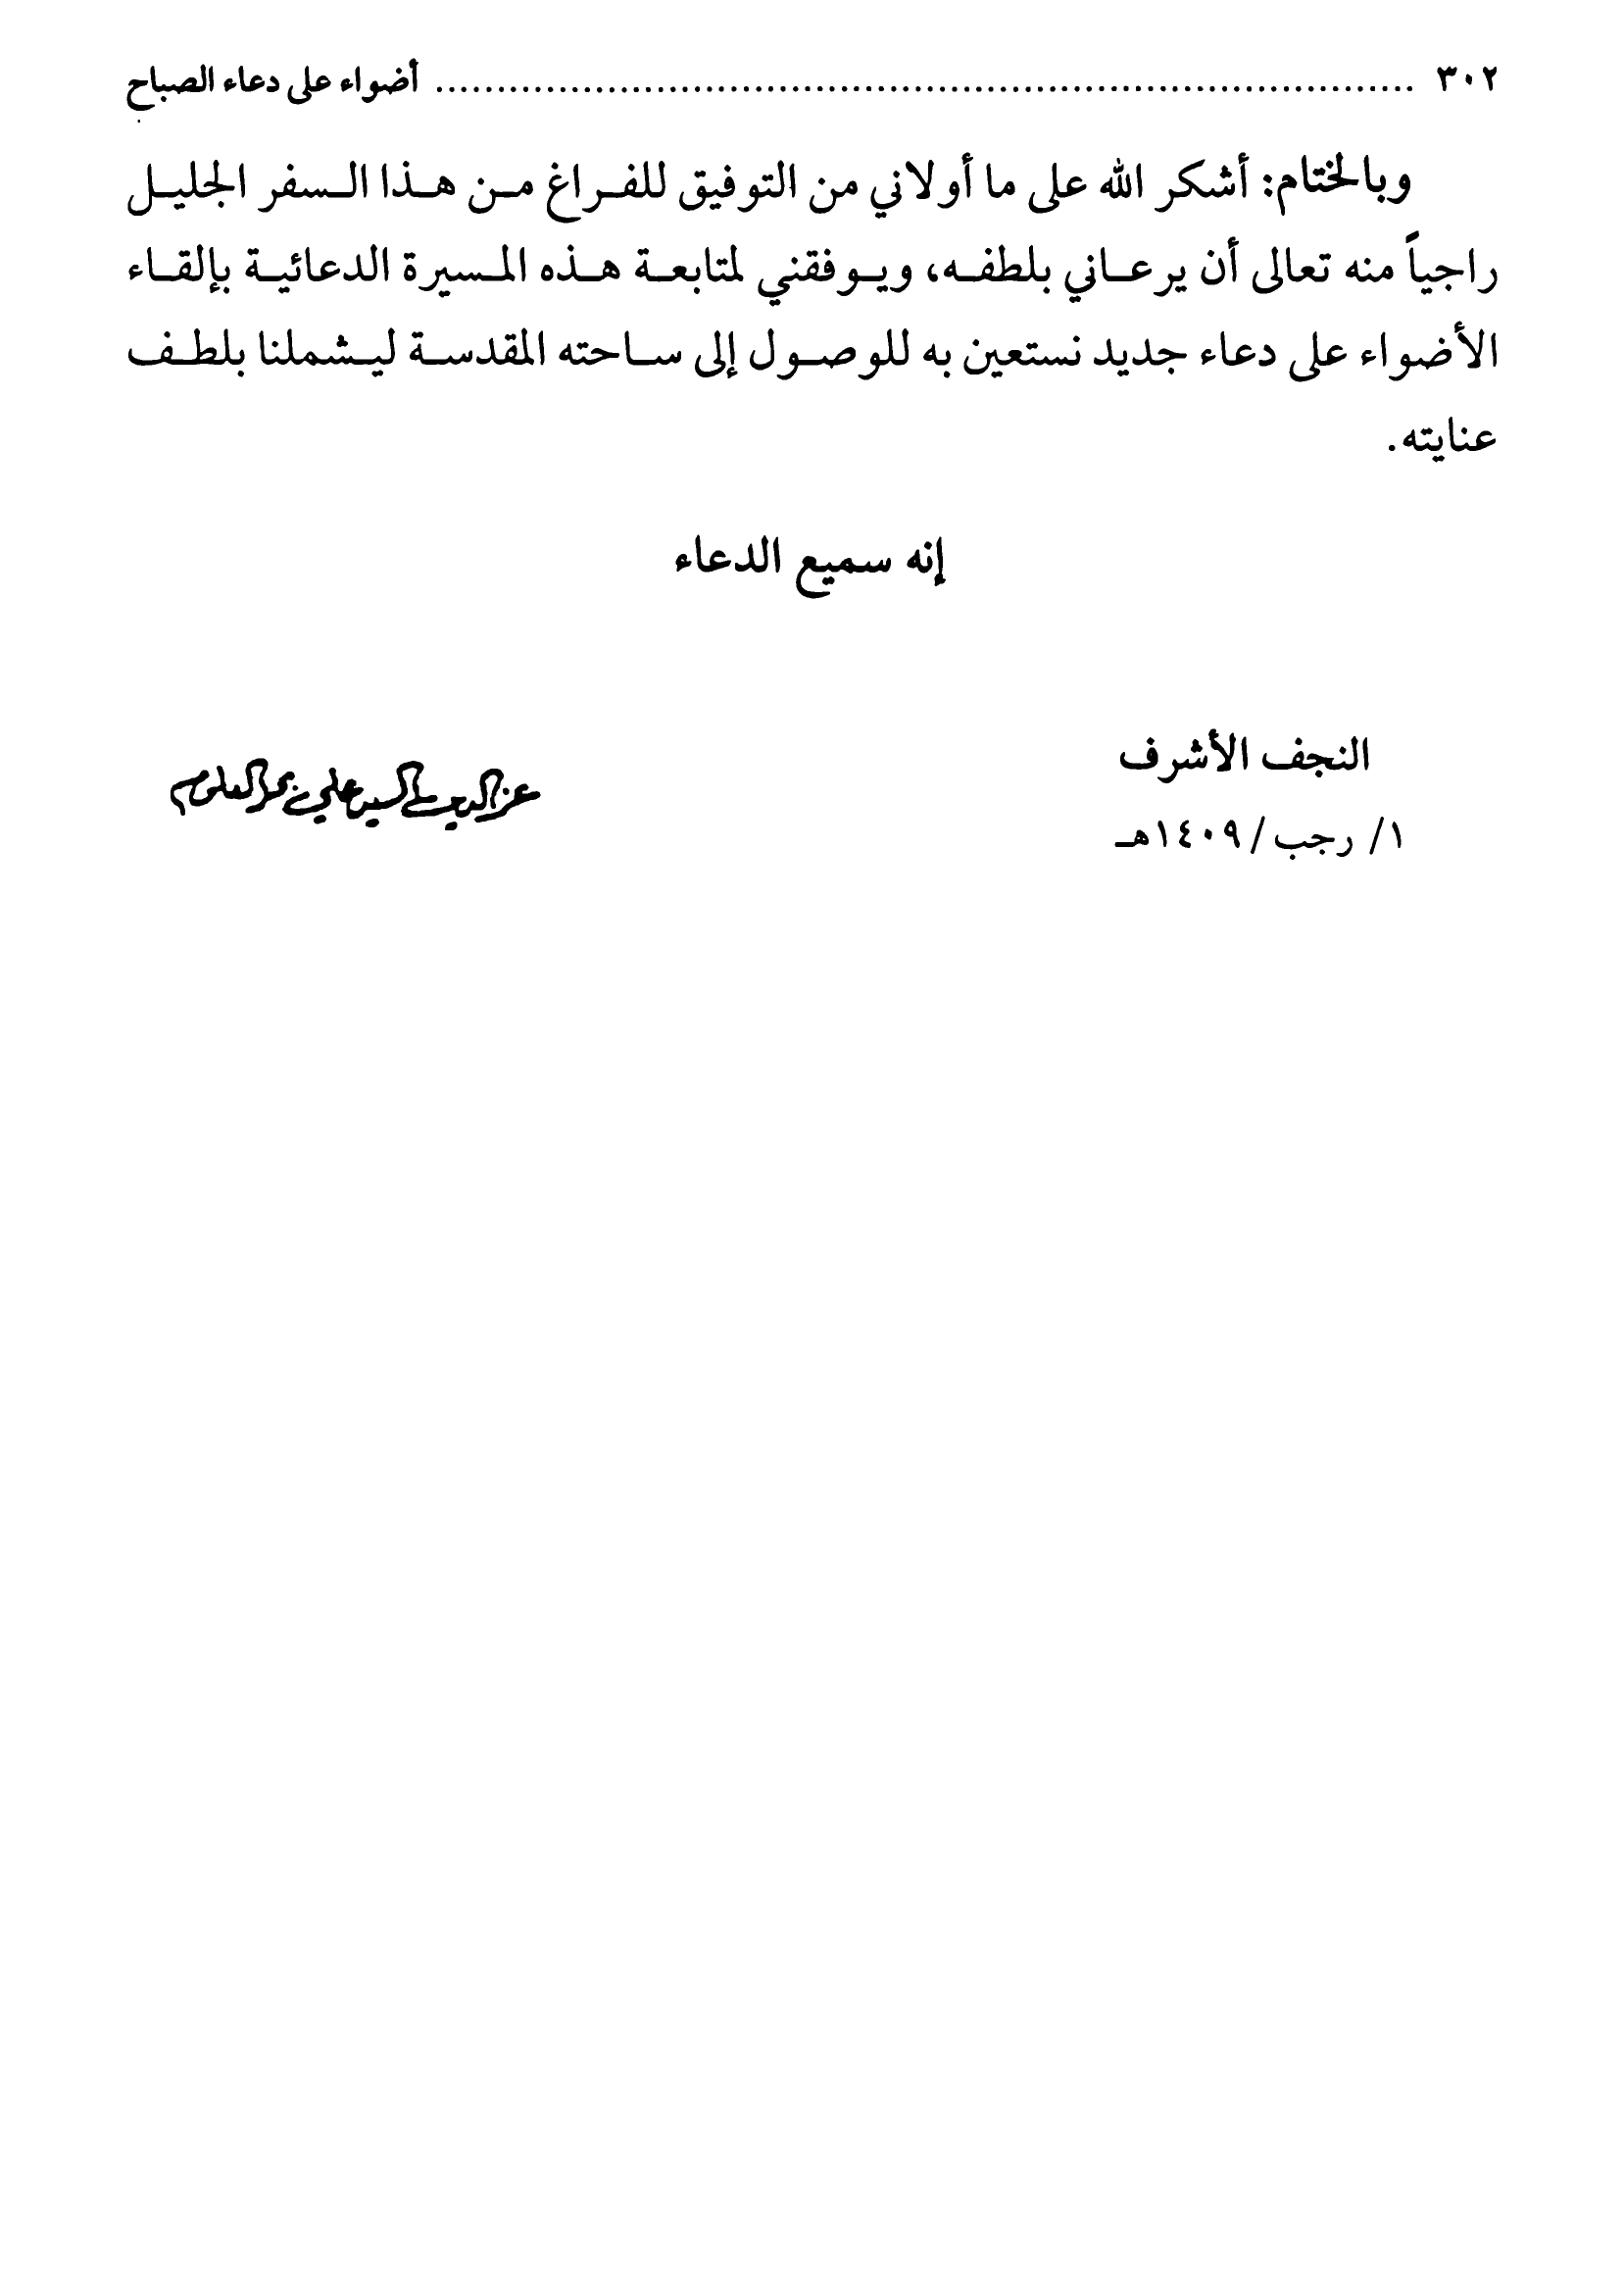 ٣٠٢ ................................................................................ أضواء على دعاء الصباح
وبالختام: أشكر الله على ما أولاني من التوفيق للفراغ من هذا السفر الجليل
راجياً منه تعالى أن يرعاني بلطفه، ويوفقني لمتابعة هذه المسيرة الدعائية بإلقاء
الأضواء على دعاء جديد نستعين به للوصول إلى ساحته المقدسة ليشملنا بلطف
عنايته.
إنه سميع الدعاء
النجف الأشرف
١/ رجب /١٤٠٩هـ
عز الدين السيد علي بحر العلوم